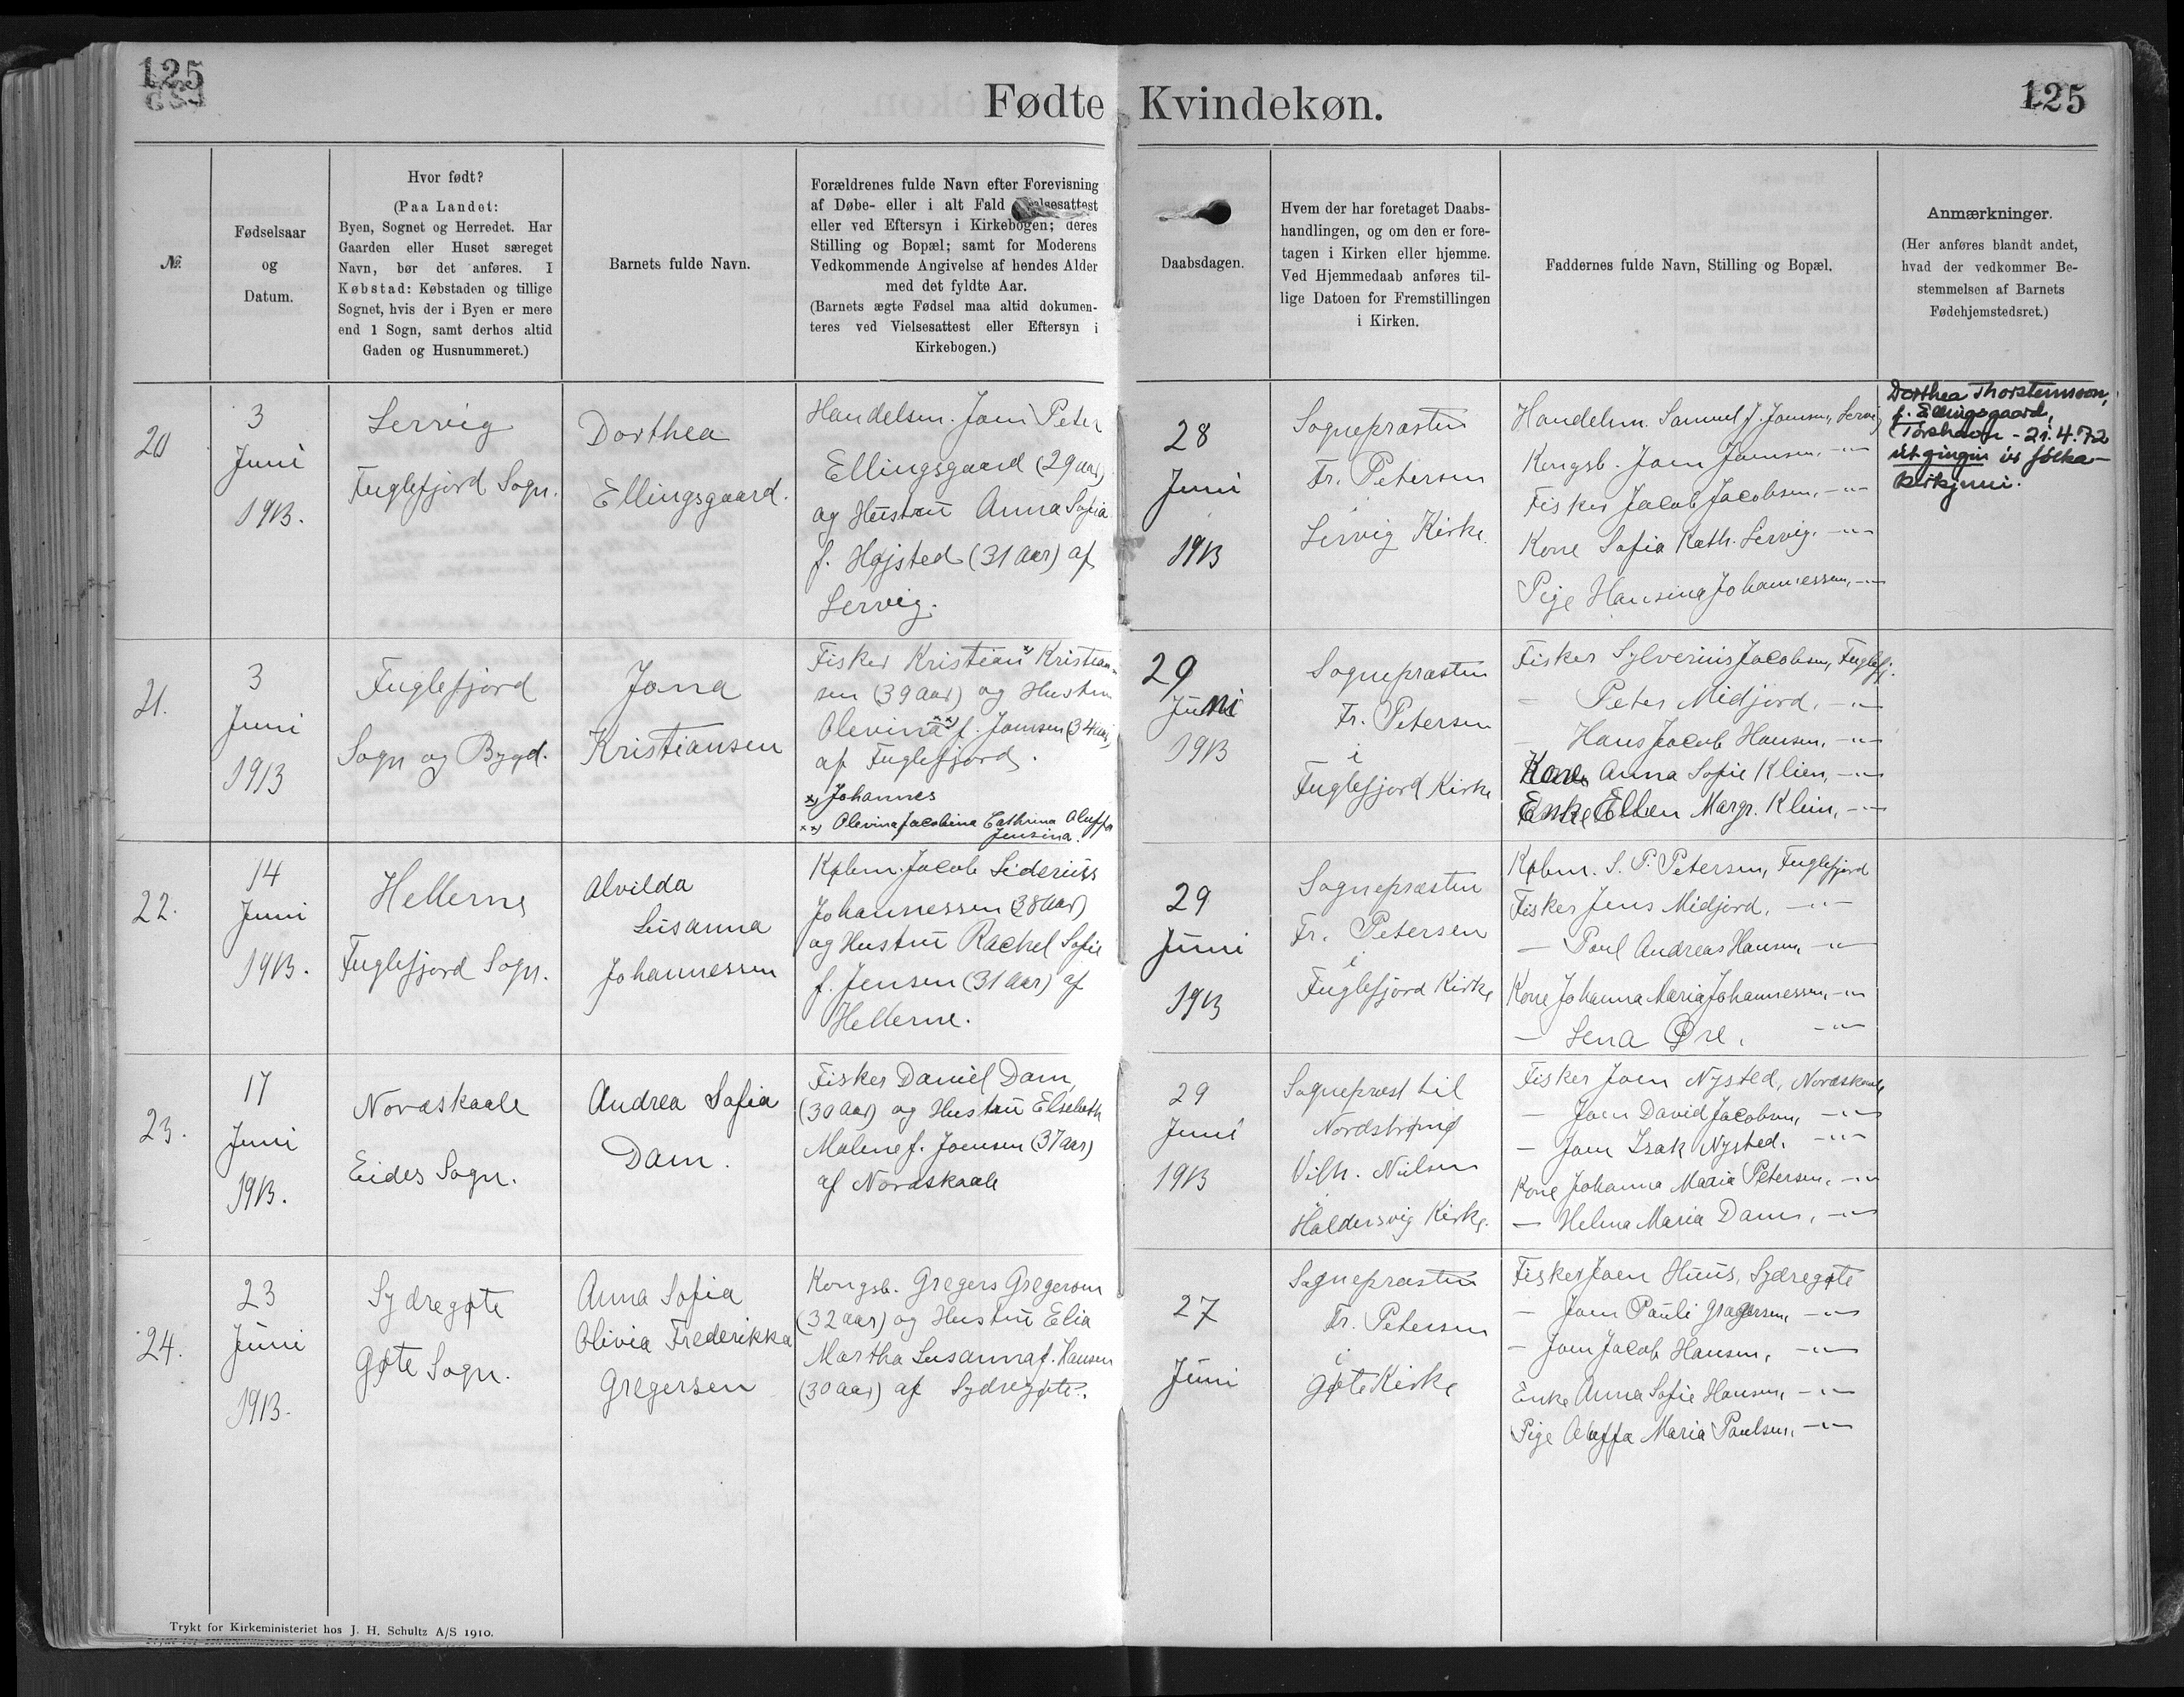 125
125
Fødte Kvindekøn.
№
Fødselsaar
og
Datum.
Hvor født?
(Paa Landet:
Byen, Sognet og Herredet. Har
Gaarden eller Huset særeget
Navn, bør det anføres. I
Købstad: Købstaden og tillige
Sognet, hvis der i Byen er mere
end 1 Sogn, samt derhos altid
Gaden og Husnummeret.)
Barnets fulde Navn.
Forældrenes fulde Navn efter Forevisning
af Døbe- eller i alt Fald
eller ved Eftersyn i Kirkebogen; deres
Stilling og Bopæl; samt for Moderens
Vedkommende Angivelse af hendes Alder
med det fyldte Aar.
(Barnets ægte Fødsel maa altid dokumen-
teres ved Vielsesattest eller Eftersyn i
Kirkebogen.)
Daabsdagen.
Hvem der har foretaget Daabs-
handlingen, og om den er fore-
tagen i Kirken eller hjemme.
Ved Hjemmedaab anføres til-
lige Datoen for Fremstillingen
i Kirken.
Faddernes fulde Navn, Stilling og Bopæl.
Anmærkninger.
(Her anføres blandt andet,
hvad der vedkommer Be-
stemmelsen af Barnets
Fødehjemstedsret.)
20
3
Juni
1913.
Lervig
Fuglefjord Sogn.
Dorthea
Ellingsgaard.
Handelsm. Joen Peter
Ellingsgaard (29 aar)
og Hustru Anna Sofia
f. Højsted (31 aar) af
Lervig.
28
Juni
1913
Sognepræsten
Fr. Petersen
i
Lervig Kirke.
Handelsm. Samuel J. Joensen, Lervig
Kongsb. Joen Joensen, -"-
Fisker Jacob Jacobsen, -"-
Kone Sofia Kath. Lervig. -"-
Pige Hansina Johannessen, -"-
Dorthea Thorsteinsson,
f. Ellingsgaard,
Tórshavn - 21.4.72
útgingin úr fólka-
kirkjuni.
21.
3
Juni
1913
Fuglefjord
Sogn og Bygd.
Jona
Kristiansen
Fisker Kristian x) Kristian-
sen (39 aar) og Hustru
Olevina xx) f. Joensen (34 aar)
af Fuglefjord.
x) Johannes
xx) Olevina Jacobina Cathrina Oluffa
Jensina.
29
Juni
1913
Sognepræsten
Fr. Petersen
i
Fuglefjord Kirke
Fisker Sylverius Jacobsen, Fuglefj.
- Peter Midjord, -"-
- Hans Jacob Hansen, -"-
Kone Anna Sofie Klien, -"-
Enke Ellen Margr. Klein, -"-
22.
14
Juni
1913.
Hellerne
Fuglefjord Sogn.
Alvilda
Susanna
Johannessen
Købm. Jacob Siderius
Johannessen (38 aar)
og Hustru Rachel Sofie
f. Jensen (31 aar) af
Hellerne.
29
Juni
1913
Sognepræsten
Fr. Petersen
i
Fuglefjord Kirke
Købm. S. P. Petersen, Fuglefjord
Fisker Jens Midjord, -"-
- Poul Andreas Hansen, -"-
Kone Johanna Maria Johannessen, -"-
- Lena Øre, -"-
23.
17
Juni
1913.
Nordskaale
Eides Sogn.
Andrea Sofia
Dam.
Fisker Daniel Dam,
(30 aar) og Hustru Elsebeth
Malene f. Joensen (37 aar)
af Nordskaale
29
Juni
1913
Sognepræst til
Nordstrømø
Vilh. Nielsen
i
Haldersvig Kirke.
Fisker Joen Nysted, Nordskaale
- Joen David Jacobsen, -"-
- Joen Isak Nysted, -"-
Kone Johanna Maria Petersen, -"-
- Helena Maria Dam, -"-
24.
23
Juni
1913.
Sydregøte
Gøte Sogn.
Anna Sofia
Olivia Frederikka
Gregersen
Kongsb. Gregers Gregersen
(32 aar) og Hustru Elia
Martha Susanna f. Hansen
(30 aar) af Sydregøte.
27
Juni
Sognepræsten
Fr. Petersen
i
Gøte Kirke
Fisker Joen Huus, Sydregøte
- Joen Pauli Gregersen, -"-
- Joen Jacob Hansen, -"-
Enke Anna Sofie Hansen, -"-
Pige Oluffa Maria Poulsen, -"-
Trykt for Kirkeministeriet hos J. H. Schultz A/S 1910.